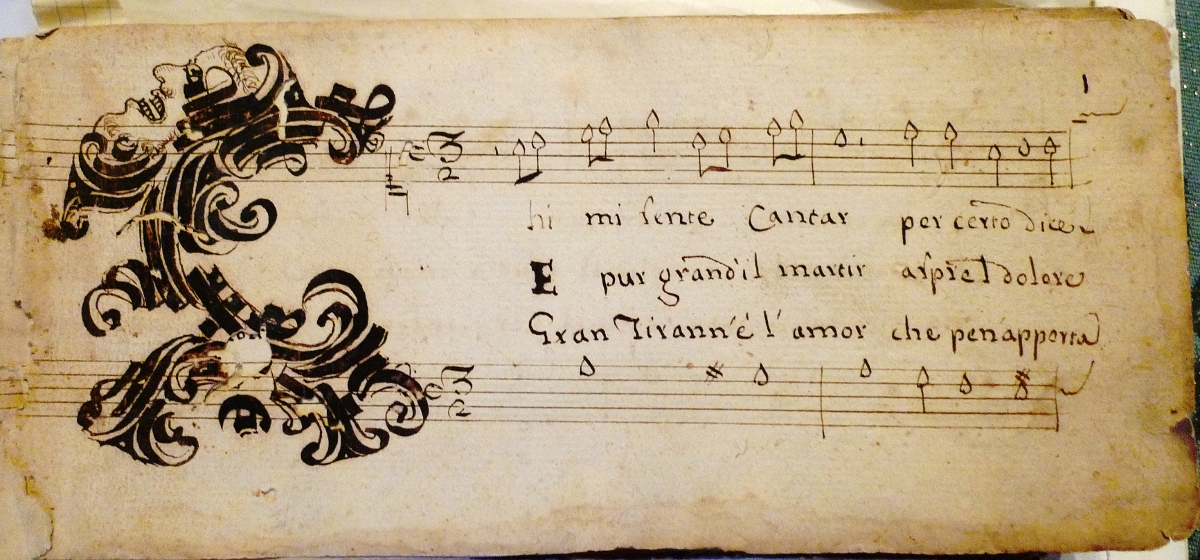 1
3
2
hi mi sente Cantar per certo dice
E pur grand'il martir aspr'e'l dolore
Gran Tirann'é l'amor che pen'apporta
3
2